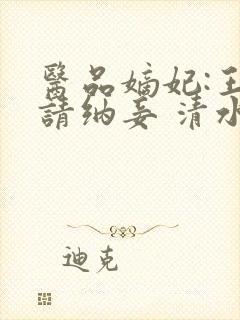 醫品嫡妃:王
請纳妾 清水
迪克